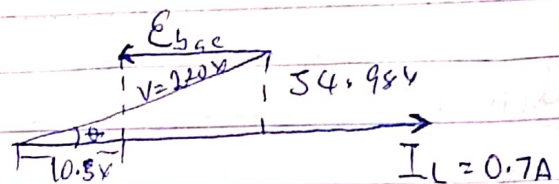 Ebac
V=220V
54.98V
θ
10.5V
I_L = 0.7A